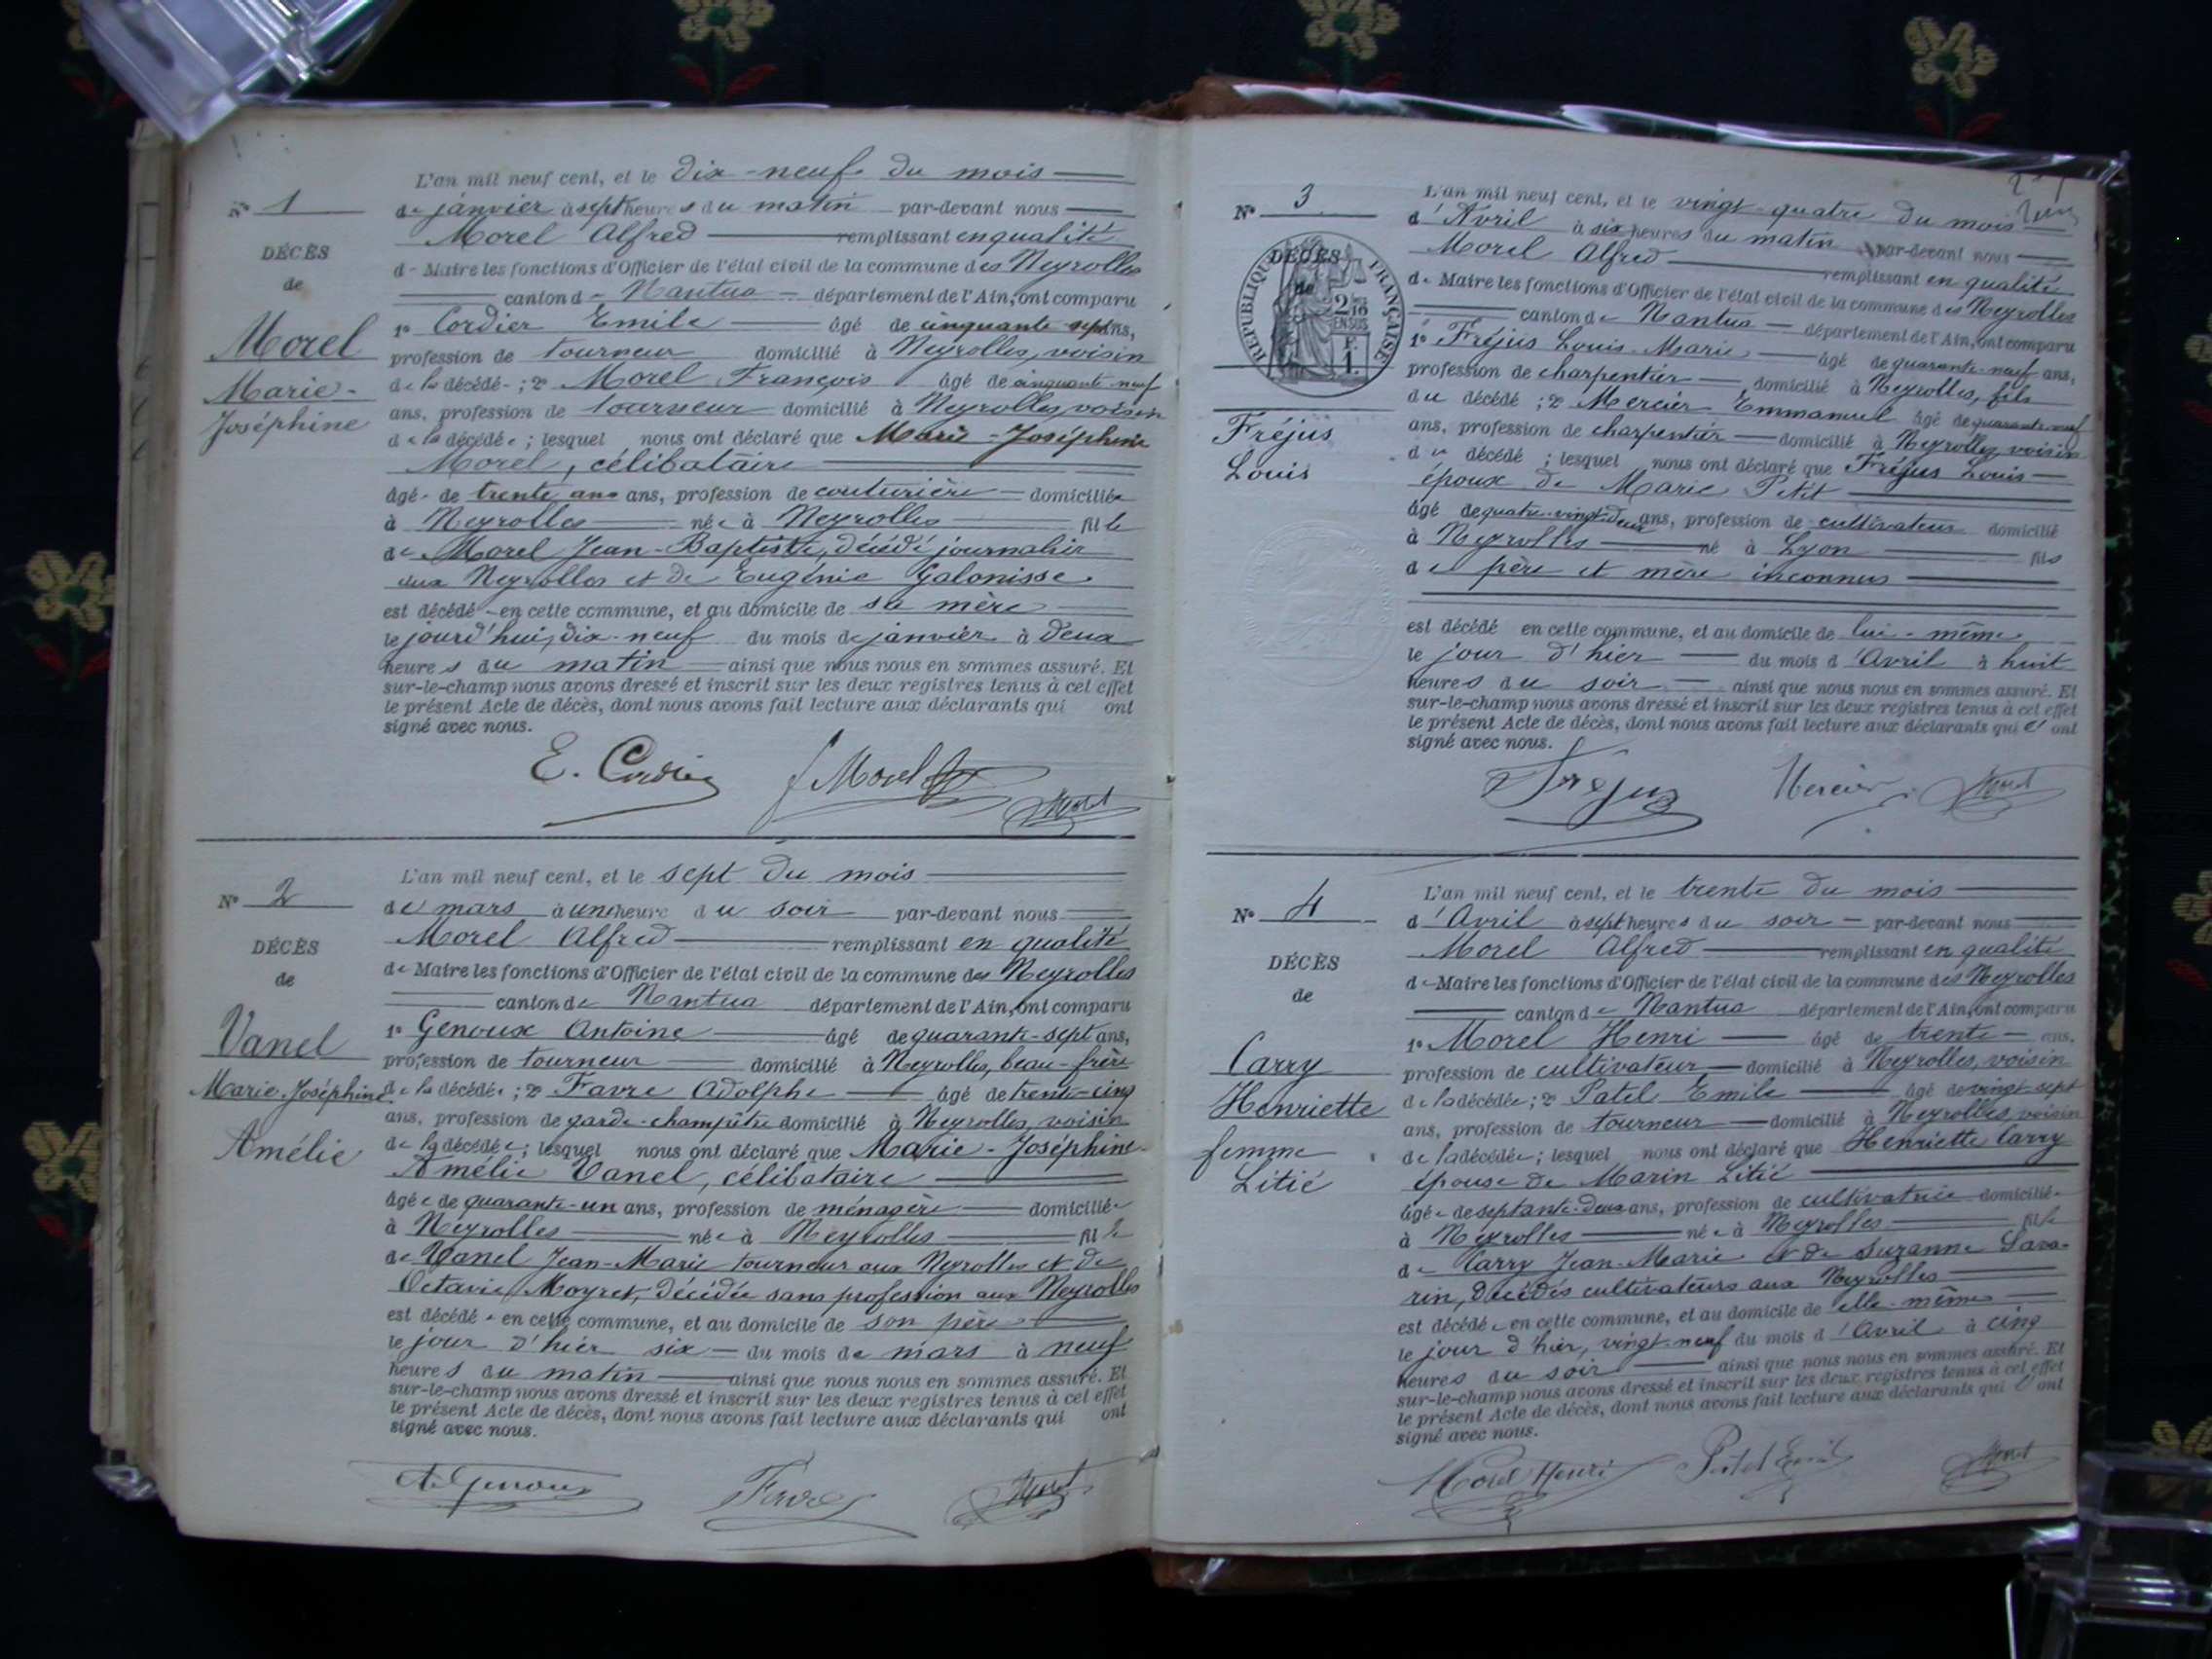 N° 1
DÉCÈS
de
Morel
Marie-
Joséphine
L'an mil neuf cent, et le dix-neuf du mois
de janvier à sept heures du matin par-devant nous
Morel Alfred remplissant en qualité
de Maire les fonctions d'Officier de l'état civil de la commune des Neyrolles
canton de Nantua département de l'Ain, ont comparu
1° Cordier Emile âgé de cinquante sept ans,
profession de tourneur domicilié à Neyrolles, voisin
de la décédé ; 2° Morel François âgé de cinquante neuf
ans, profession de tourneur domicilié à Neyrolles, voisin
de la décédée ; lesquel nous ont déclaré que Marie-Joséphine
Morel, célibataire
âgé de trente ans ans, profession de couturière domiciliée
à Neyrolles née à Neyrolles fille
de Morel Jean-Baptiste, décédé journalier
aux Neyrolles et de Eugénie Galonisse
est décédé en cette commune, et au domicile de sa mère
le jourd'hui, dix-neuf du mois de janvier à deux
heures du matin ainsi que nous nous en sommes assuré. Et
sur-le-champ nous avons dressé et inscrit sur les deux registres tenus à cet effet
le présent Acte de décès, dont nous avons fait lecture aux déclarants qui ont
signé avec nous.
E. Cordier f Morel Morel
N° 2
DÉCÈS
de
Vanel
Marie-Joséphine
Amélie
L'an mil neuf cent, et le sept du mois
de mars à une heure du soir par-devant nous
Morel Alfred remplissant en qualité
de Maire les fonctions d'Officier de l'état civil de la commune des Neyrolles
canton de Nantua département de l'Ain, ont comparu
1° Genoux Antoine âgé de quarante-sept ans,
profession de tourneur domicilié à Neyrolles, beau-frère
de la décédée ; 2° Favre Adolphe âgé de trente-cinq
ans, profession de garde-champêtre domicilié à Neyrolles, voisin
de la décédée ; lesquel nous ont déclaré que Marie-Joséphine-
Amélie Vanel, célibataire
âgée de quarante-un ans, profession de ménagère domiciliée
à Neyrolles née à Neyrolles fille
de Vanel Jean-Marie tourneur aux Neyrolles et de
Octavie Moyret, décédée sans profession aux Neyrolles
est décédée en cette commune, et au domicile de son père
le jour d'hier six du mois de mars à neuf
heures du matin ainsi que nous nous en sommes assuré. Et
sur-le-champ nous avons dressé et inscrit sur les deux registres tenus à cet effet
le présent Acte de décès, dont nous avons fait lecture aux déclarants qui ont
signé avec nous.
A. Genoux Favre Morel
N° 3
DÉCÈS
de
RÉPUBLIQUE FRANÇAISE
2/10
EN SUS
F.
1.
Fréjus
Louis
L'an mil neuf cent, et le vingt-quatre du mois
d'Avril à six heures du matin par-devant nous
Morel Alfred remplissant en qualité
de Maire les fonctions d'Officier de l'état civil de la commune des Neyrolles
canton de Nantua département de l'Ain, ont comparu
1° Fréjus Louis-Marie âgé de quarante-neuf ans,
profession de charpentier domicilié à Neyrolles, fils
du décédé ; 2° Mercier Emmanuel âgé de quarante-neuf
ans, profession de charpentier domicilié à Neyrolles, voisin
du décédé ; lesquel nous ont déclaré que Fréjus Louis
époux de Marie Petit
âgé de quatre-vingt-deux ans, profession de cultivateur domicilié
à Neyrolles né à Lyon fils
de père et mère inconnus
est décédé en cette commune, et au domicile de lui-même
le jour d'hier du mois d'Avril à huit
heures du soir ainsi que nous nous en sommes assuré. Et
sur-le-champ nous avons dressé et inscrit sur les deux registres tenus à cet effet
le présent Acte de décès, dont nous avons fait lecture aux déclarants qui ont
signé avec nous.
Fréjus Mercier Morel
N° 4
DÉCÈS
de
Carry
Henriette
femme
Litié
L'an mil neuf cent, et le trente du mois
d'Avril à sept heures du soir par-devant nous
Morel Alfred remplissant en qualité
de Maire les fonctions d'Officier de l'état civil de la commune des Neyrolles
canton de Nantua département de l'Ain, ont comparu
1° Morel Henri âgé de trente ans,
profession de cultivateur domicilié à Neyrolles, voisin
de la décédée ; 2° Patel Emile âgé de vingt-sept
ans, profession de tourneur domicilié à Neyrolles, voisin
de la décédée ; lesquel nous ont déclaré que Henriette Carry
épouse de Marin Litié
âgée de septante-deux ans, profession de cultivatrice domiciliée
à Neyrolles née à Neyrolles fille
de Carry Jean-Marie et de Suzanne Sava-
rin, décédés cultivateurs aux Neyrolles
est décédée en cette commune, et au domicile de elle-même
le jour d'hier, vingt-neuf du mois d'Avril à cinq
heures du soir ainsi que nous nous en sommes assuré. Et
sur-le-champ nous avons dressé et inscrit sur les deux registres tenus à cet effet
le présent Acte de décès, dont nous avons fait lecture aux déclarants qui ont
signé avec nous.
Morel Henri Patel Emile Morel